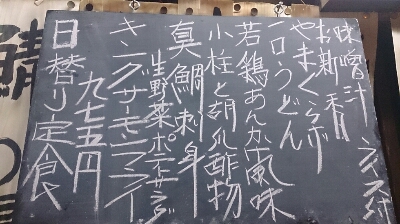 日替り定食
九七五円
キングサーモンフライ
生野菜 ポテトサラダ
真鯛刺身
小柱と胡瓜酢物
若鶏あんかけ風味
一口うどん
やまくらげ
お新香
味噌汁 ライス付